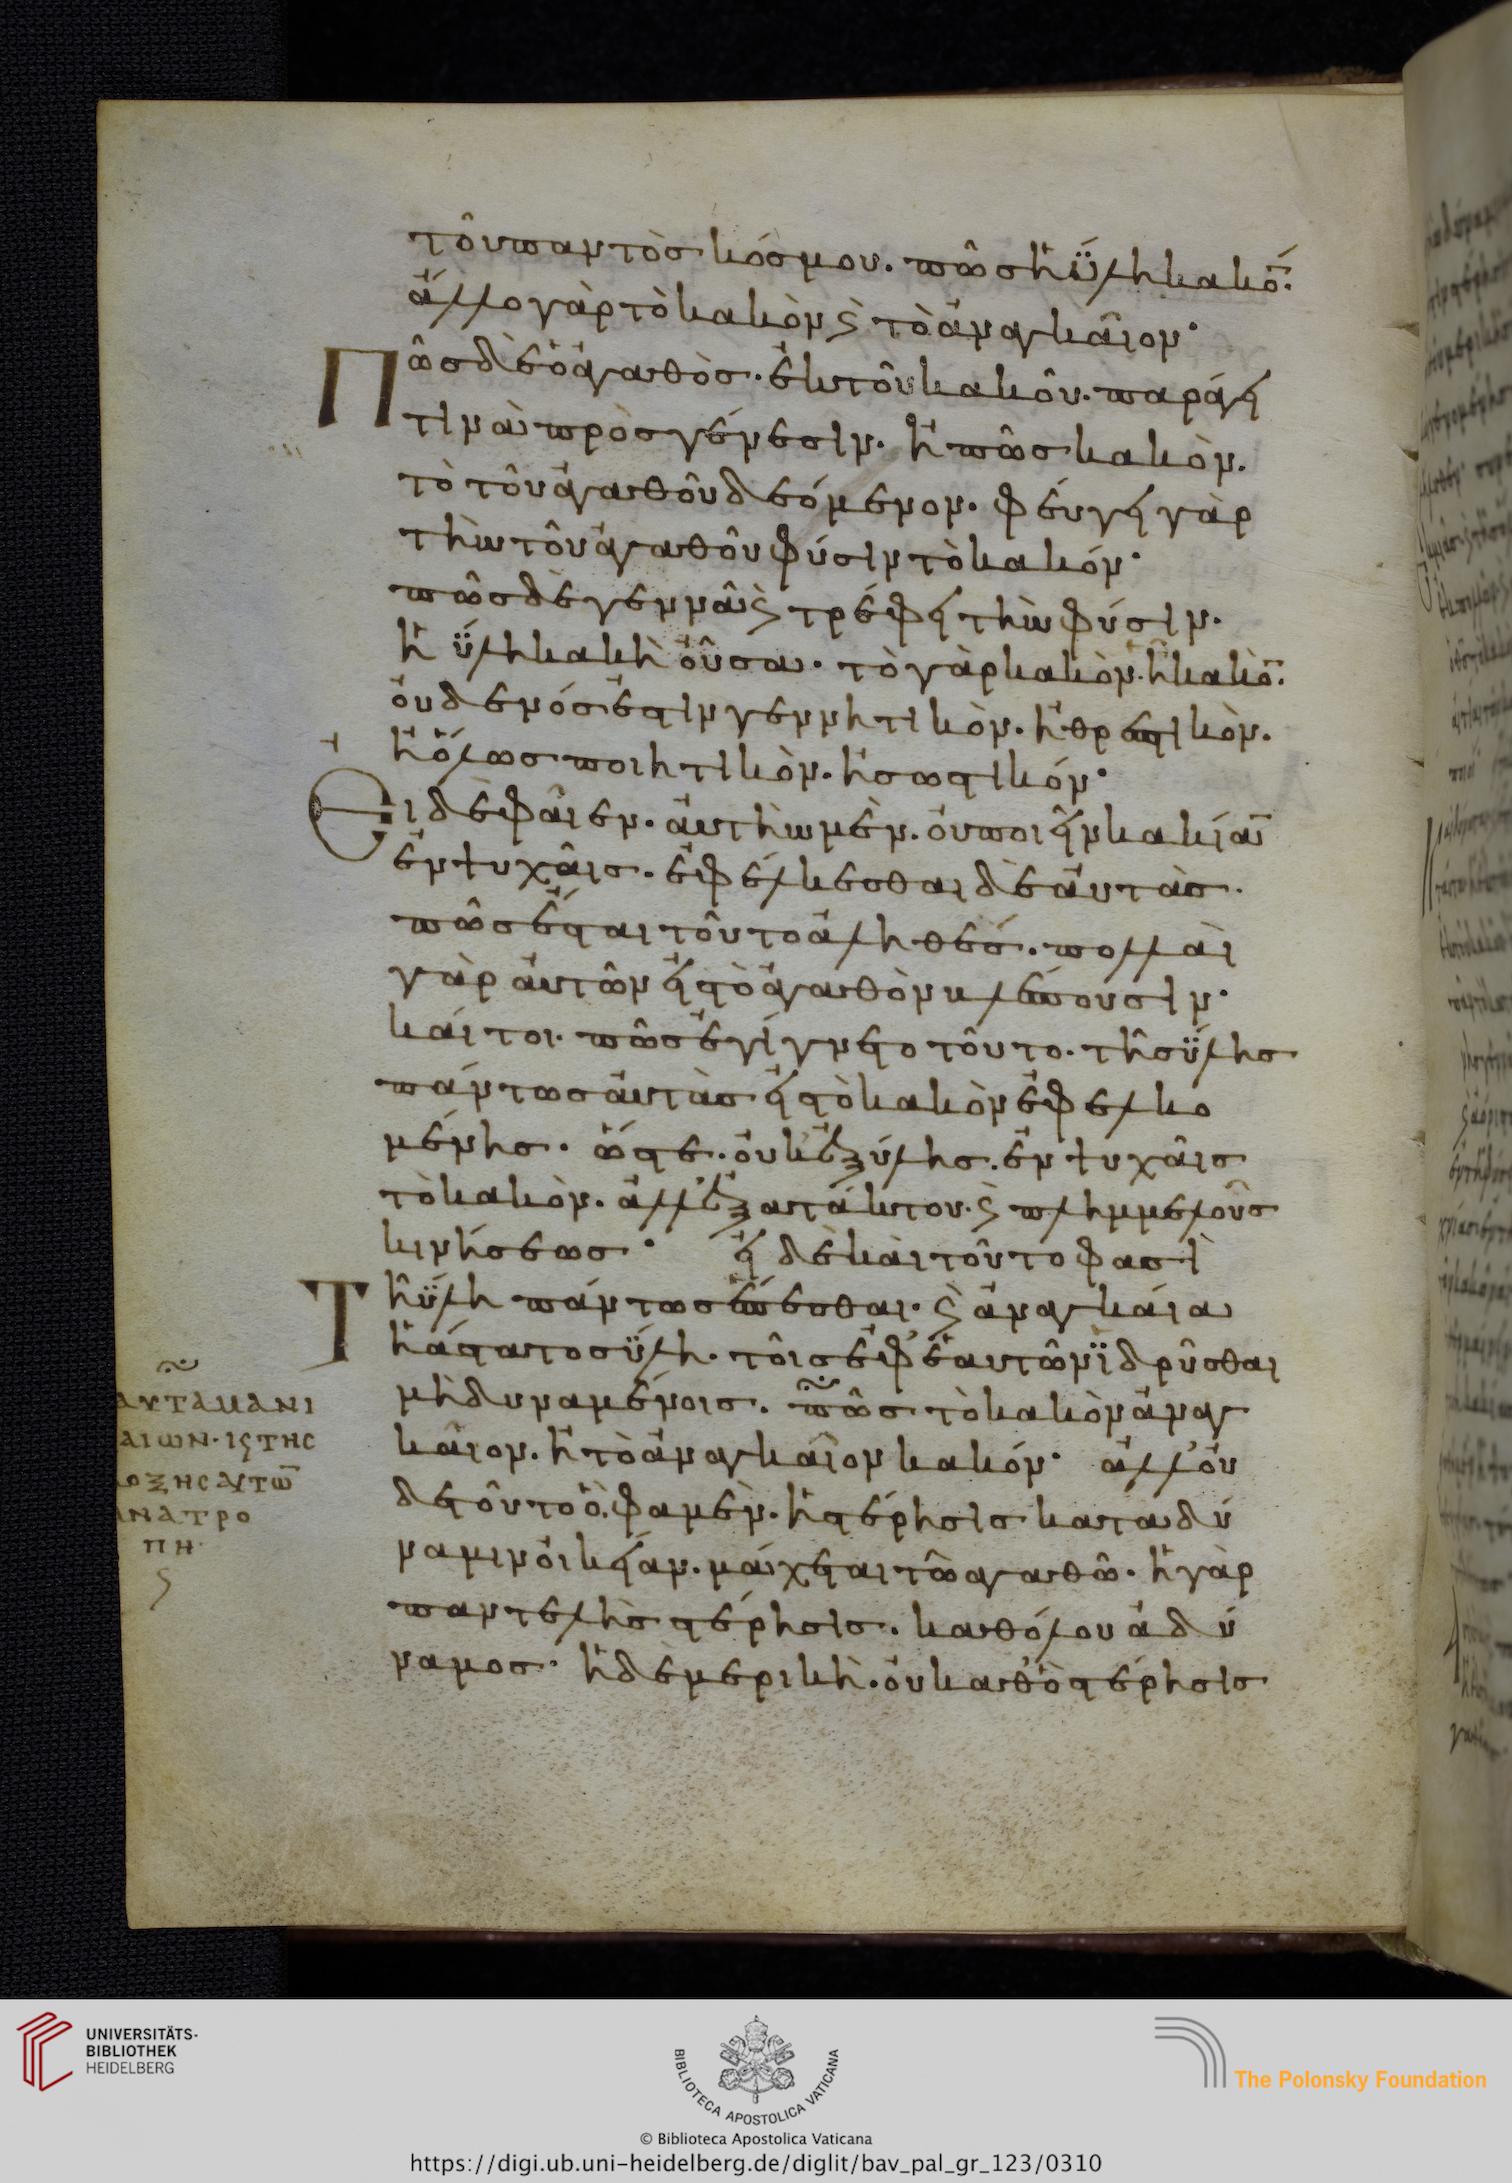 τοῦ παντὸς κόσμου. πῶς ἡ ὕλη κακό̅.
ἄλλο γὰρ τὸ κακὸν ϛ τὸ ἀναγκαῖον·
Πῶς δὲ ὁ ἀγαθὸς. ἐκ τοῦ κακοῦ. παράγει
τινὰ πρὸς γένεσιν. ἢ πῶς κακὸν.
τὸ τοῦ ἀγαθοῦ δεόμενον. φέυγει γὰρ
τὴν τοῦ ἀγαθοῦ φύσιν τὸ κακόν·
πῶς δὲ γεννᾶ ϛ τρέφει τὴν φύσιν.
ἡ ὕλη κακὴ οὖσα. τὸ γὰρ κακὸν. ἧ κακὸ̅.
ὀυδενός ἐστιν γεννητικὸν. ἢ θρεπτικὸν.
ἢ ὅλως ποιητικὸν. ἢ σωστικόν·
Ει δὲ φᾶιεν. ἀυτὴν μὲν. ὀυ ποιεῖν κακία̅
ἐν ψυχᾶις. ἐφέλκεσθαι δὲ ἀυτὰς.
πῶς ἔσται τοῦτο ἀληθές. πολλὰι
γὰρ ἀυτῶν εἰς τὸ ἀγαθὸν βλέπουσιν·
κάιτοι. πῶς ἐγίγνετο τοῦτο. τῆς ὕλης
πάντως ἀυτὰς εἰς τὸ κακὸν ἐφελκο
μένης. ὥστε. ὀυκ ἐξ ὕλης. ἐν ψυχᾶις
τὸ κακὸν. ἀλλ' ἐξ ατάκτου. ϛ πλημμελοῦς
κινήσεως· εἰ δὲ κὰι τοῦτο φασὶ
Τῆ ὕλη πάντως ἕπεσθαι. ϛ ἀναγκάια
ἡ ἄστατος ὕλη. τοῖς ἐφ' ἑαυτῶν ἱδρῦσθαι
μὴ δυναμένοις. πῶς τὸ κακὸν ἀναγ
καῖον. ἢ τὸ ἀναγκαῖον κακόν· ἀλλ' ὀυ
δὲ τοῦτο ὅ. φαμὲν. ἡ στέρησις κατα δύ
ναμιν ὀικείαν. μάχεται τῶ ἀγαθῶ. ἡ γὰρ
παντελὴς στέρησις. καθόλου ἀδύ
ναμος· ἡ δὲ μερικὴ. ὀυ καθ' ὃ στέρησις
ΑΥΤΑ ΜΑΝΙ
ΑΙΩΝ·ΙϚ ΤΗϹ
ΟΞΗϹ ΑΥΤΩ̅
ΝΑΤΡΟ
ΠΗ·
UNIVERSITÄTS-
BIBLIOTHEK
HEIDELBERG
BIBLIOTECA APOSTOLICA VATICANA
The Polonsky Foundation
© Biblioteca Apostolica Vaticana
https://digi.ub.uni-heidelberg.de/diglit/bav_pal_gr_123/0310